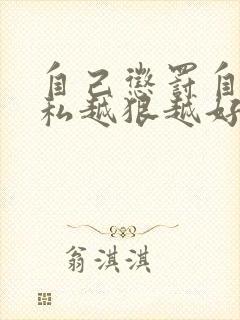 自己惩罚自
私越狠越好
翁淇淇